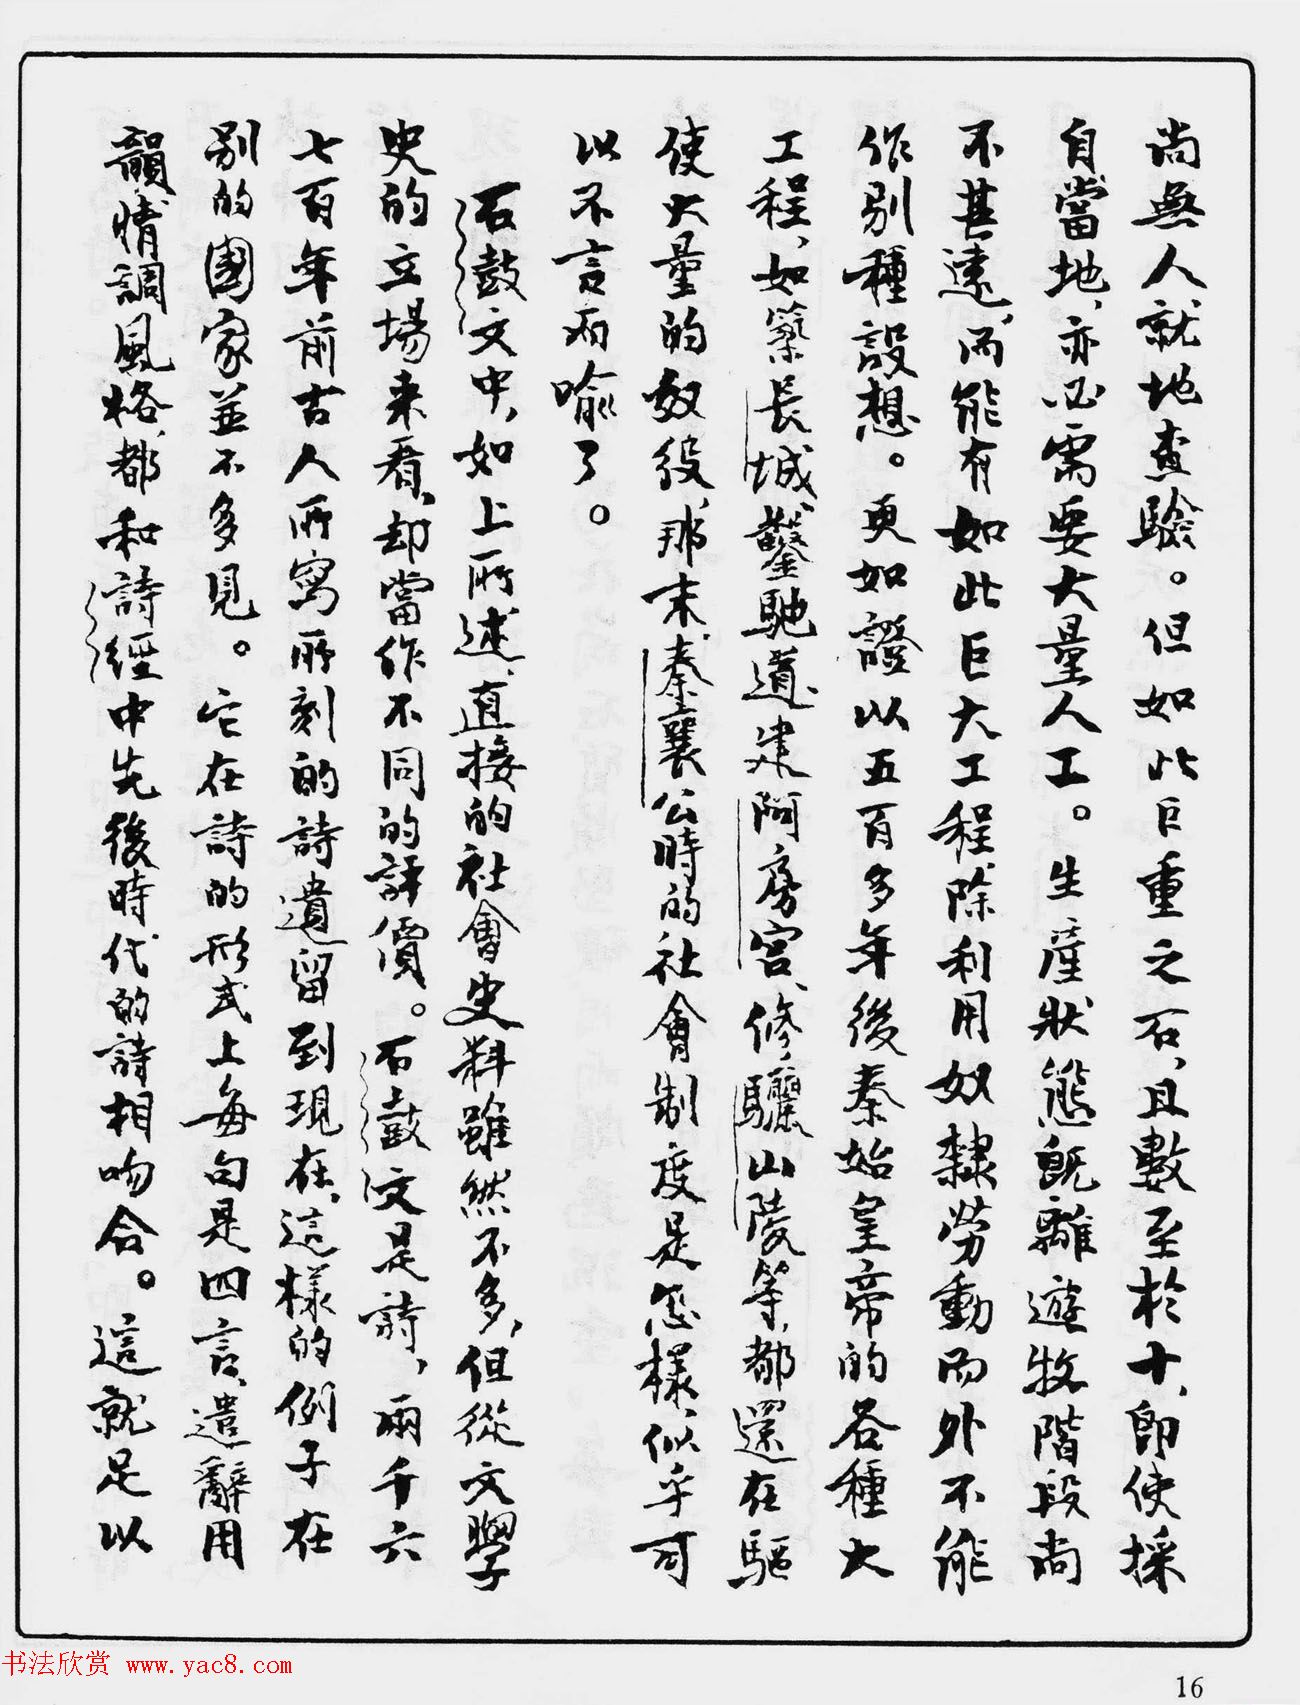 尚無人就地查驗。但如此巨重之石、且數至於十、即使採
自當地、亦必需要大量人工。生產狀態既離遊牧階段尚
不甚遠、而能有如此巨大工程、除利用奴隸勞動而外不能
作別種設想。更如證以五百多年後秦始皇帝的各種大
工程、如築長城、鑿馳道、建阿房宮、修驪山陵等、都還在驅
使大量的奴役、那末、秦襄公時的社會制度是怎樣、似乎可
以不言而喻了。
石鼓文中、如上所述、直接的社會史料雖然不多、但從文學
史的立場来看、却當作不同的評價。石鼓文是詩、兩千六
七百年前古人所寫所刻的詩遺留到現在、這樣的例子在
別的國家並不多見。它在詩的形式上每句是四言、遣辭用
韻、情調風格、都和詩經中先後時代的詩相吻合。這就足以
书法欣赏 www.yac8.com
16